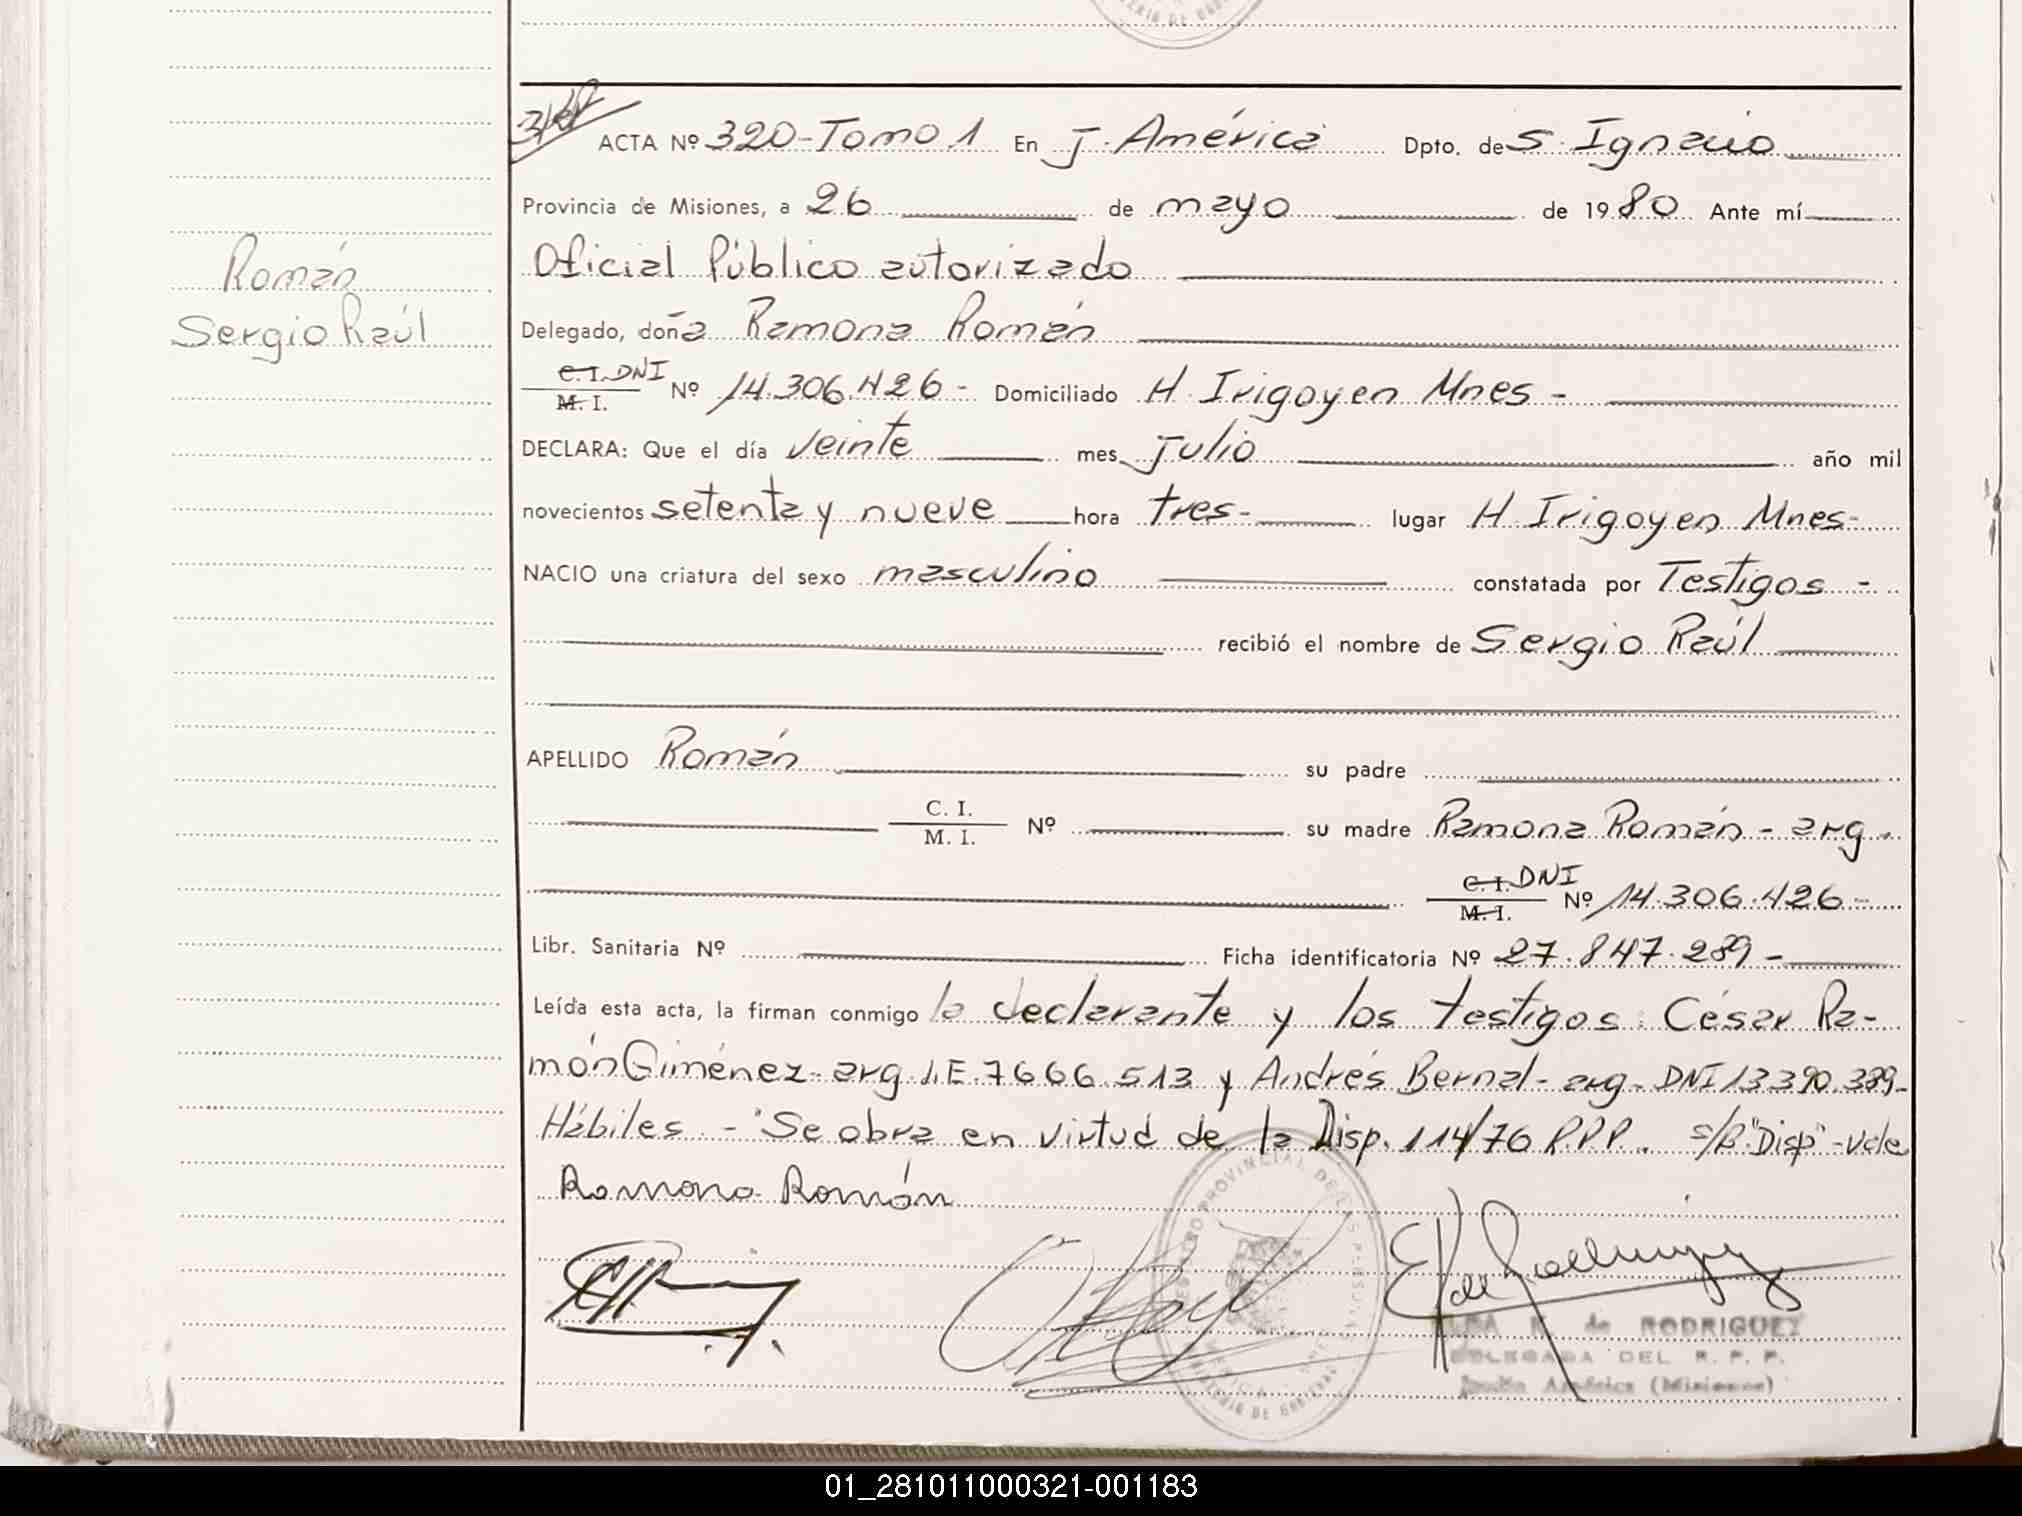 ACTA Nº 320-Tomo 1 En J. América Dpto. de S. Ignacio
Provincia de Misiones, a 26 de mayo de 1980 Ante mí
Oficial Público autorizado
Román
Sergio Raúl
Delegado, doña Ramona Román
C.I. DNI
M. I.
Nº 14.306.426- Domiciliado H. Irigoyen Mnes-
DECLARA: Que el día veinte mes julio año mil
novecientos setenta y nueve hora tres- lugar H Irigoyen Mnes-
NACIO una criatura del sexo masculino constatada por Testigos-
recibió el nombre de Sergio Raúl
APELLIDO Román su padre
C. I.
M. I.
Nº su madre Ramona Román - arg.
C.I. DNI
M.I.
Nº 14.306.426-
Libr. Sanitaria Nº Ficha identificatoria Nº 27.847.289-
Leída esta acta, la firman conmigo la declarante y los testigos: César Ra-
món Giménez- arg. L.E. 7666.513 y Andrés Bernal- arg- DNI 13.390.389-
Hábiles - Se obra en virtud de la Disp. 114/76 R.P.P. s/b "Disp"-vale
Ramona Román
REGISTRO PROVINCIAL DE LAS PERSONAS
de RODRIGUEZ
DELEGADA DEL R. P. P.
Jardín América (Misiones)
01_281011000321-001183